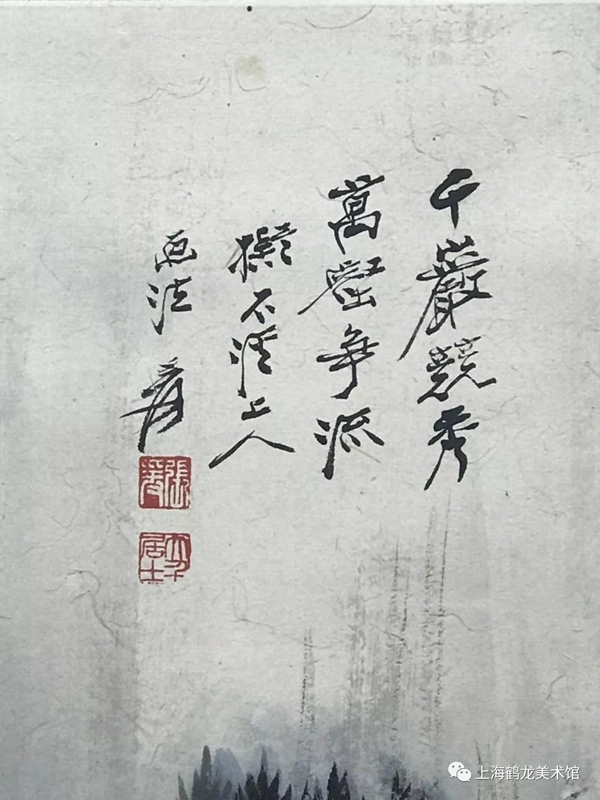 千巖競秀
萬壑争流
擬石溪上人
画法 爰
張爰
大千居士
上海鹤龙美术馆